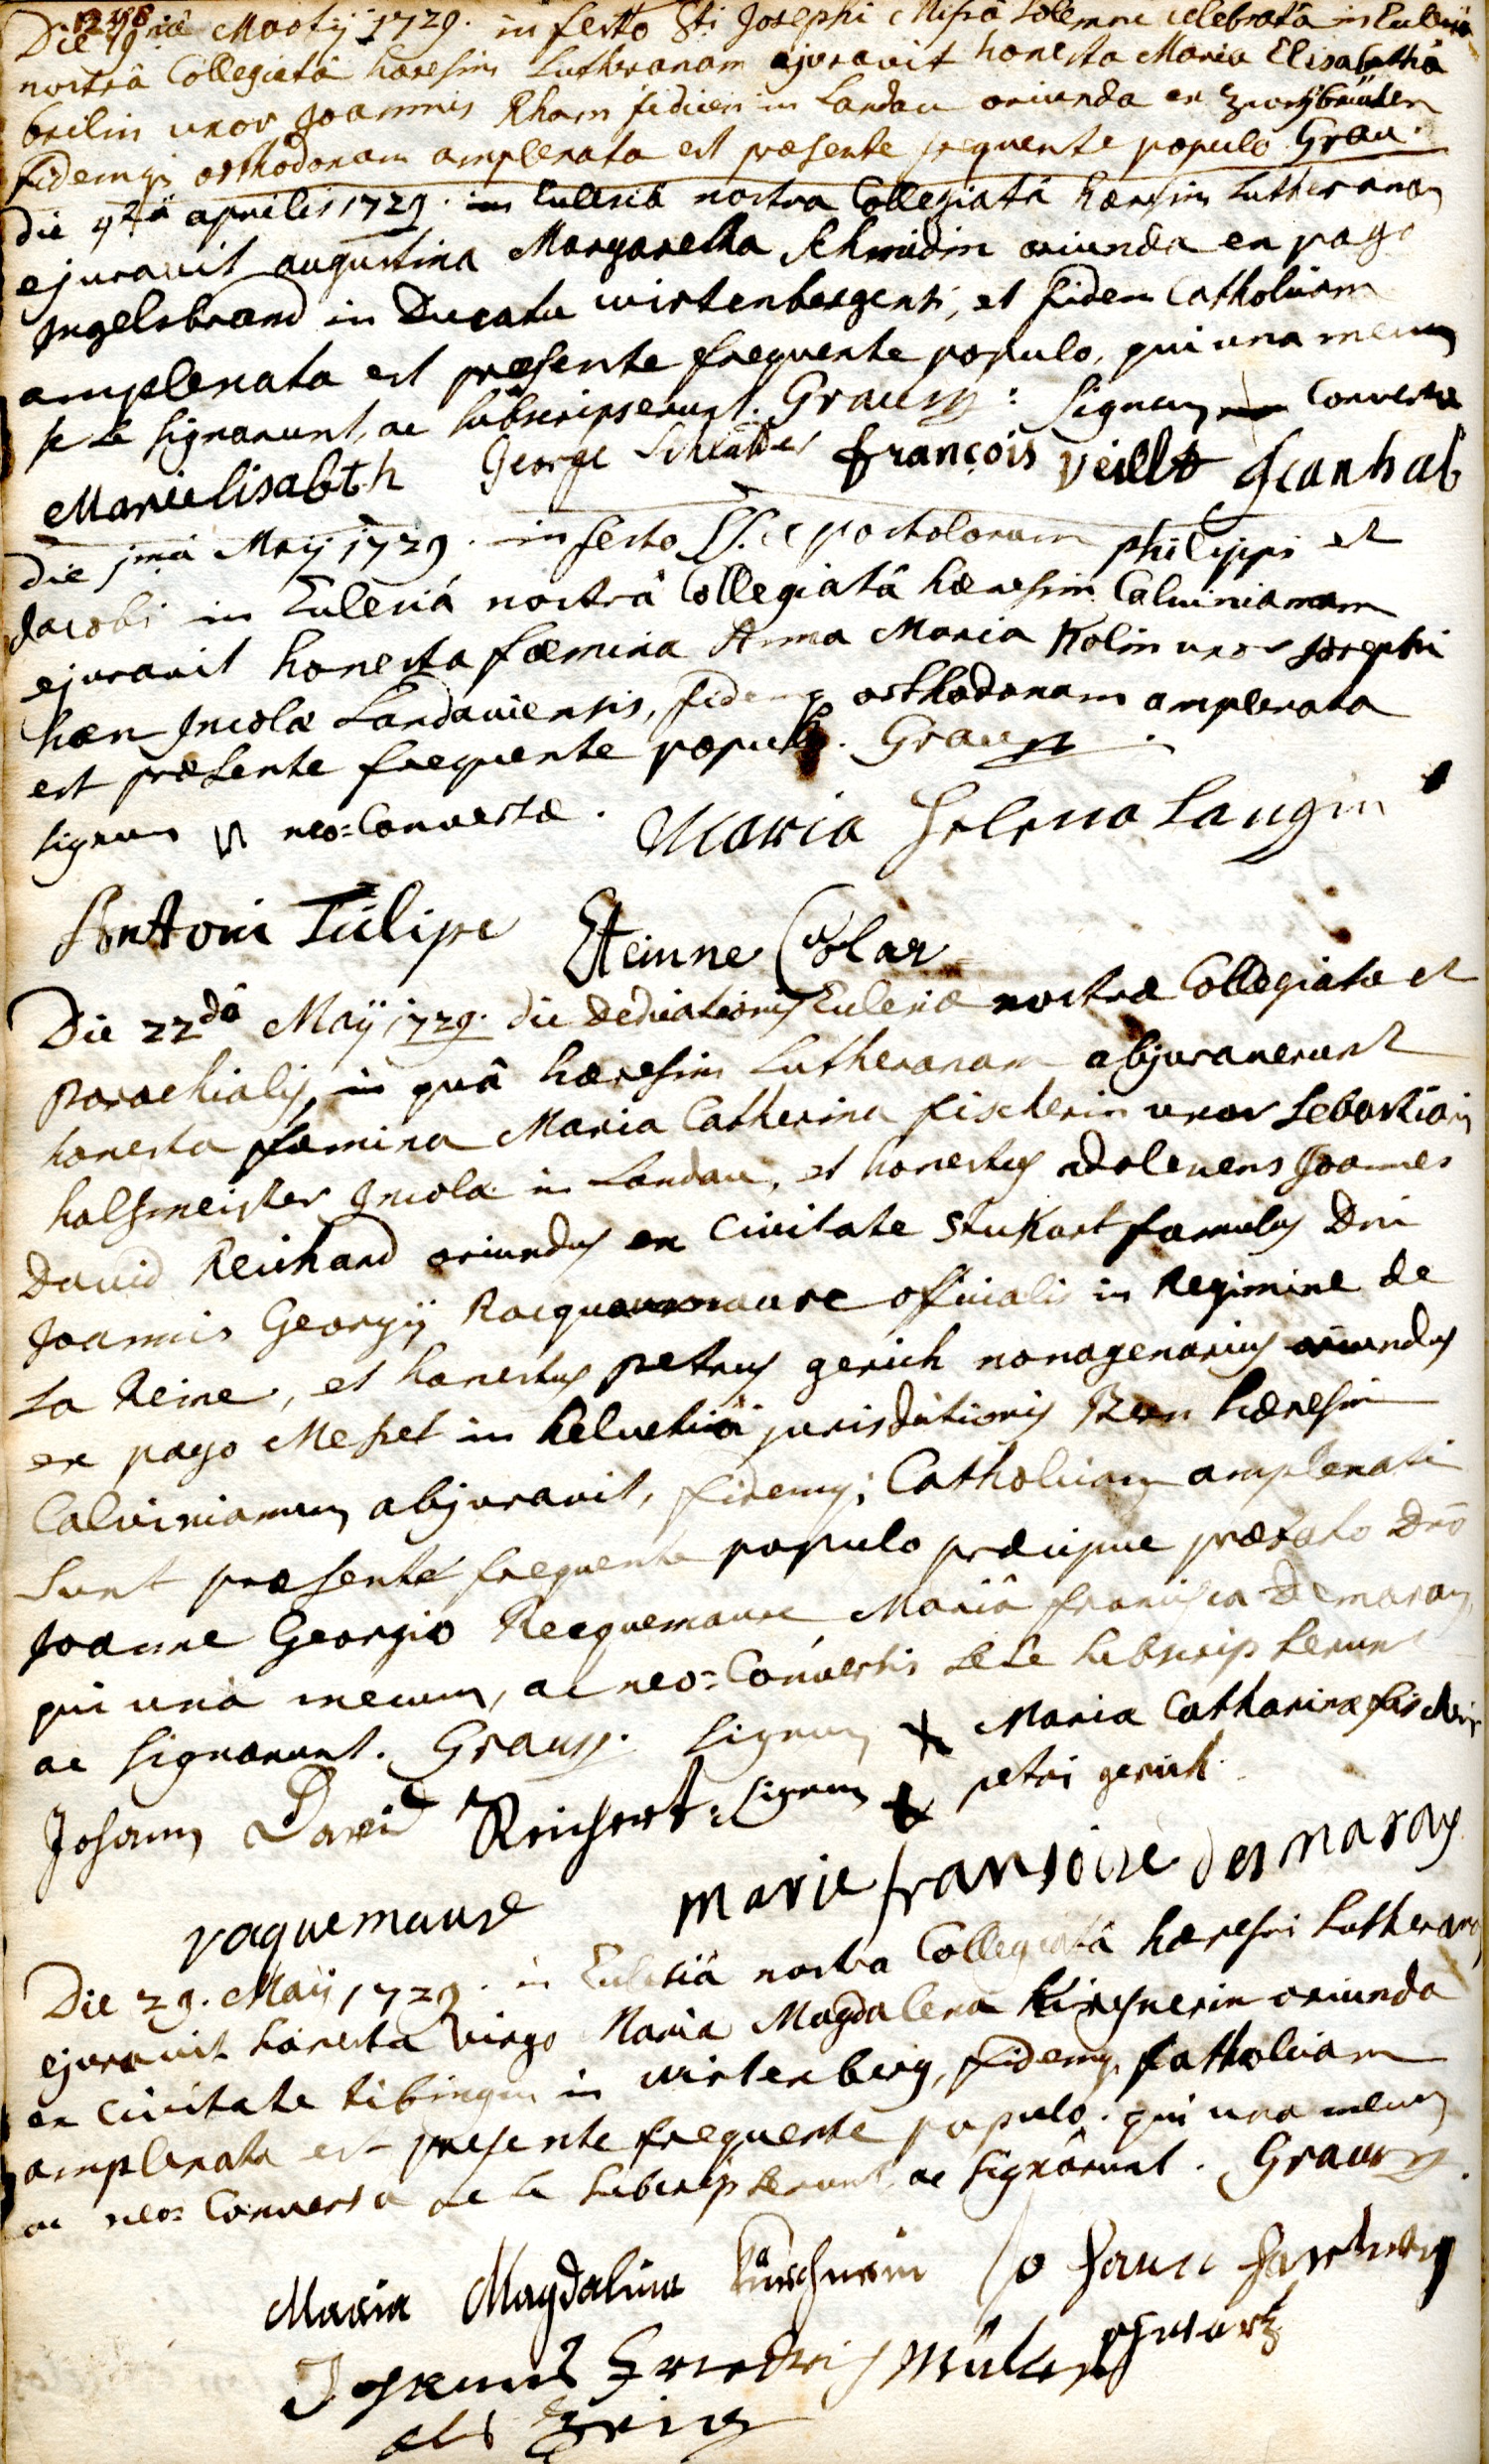 Die 19nâ Martij 1729. in festo Sti Josephi Missâ solemni celebratâ in Ecclesiâ
nostrâ Collegiatâ haresim Lutheranam ejuravit honesta Maria Elisabetha
beilin uxor Joannis Rham fidicin in Landau oriunda ex zweÿbrücken
fidemq; orthodoxam amplexata est præsente frequente populo. Grau.
die 4tâ aprilis 1729. Ecclesiâ nostra Collegiatâ hæresim Lutheranam
ejuravit augustina Margaretha Schmidin oriunda ex pago
Ingelsbrand in Ducatu wirtenbergensi, et fidem Catholicam
amplexata est præsente frequente populo, qui una mecum
se se signarunt, ac subscripserunt. Grauss: signum Conversæ
Marielisabth George françois veillt
die jmâ Maij 1729. in festo SS. apostolorum philippi et
Jacobi in Ecclesiâ nostrâ Collegiatâ hæresim Calvinianam
ejuravit honesta fæmina Anna Maria Kolin uxor Josephi
hæn Jncolæ Landaviensis, fidemq orthodoxam amplexata
est præsente frequente populo. Grauss.
signum neo=Conversæ. Maria Helena Langin
Antoni Tulipe Eteinne Colar
Die 22dâ Maÿ 1729. die Dedicationis Ecclesiæ nostræ Collegiatæ et
Parochialis, in quâ hæresim Lutheranam abjuraverunt
honesta fæmina Maria Catherina fischerin uxor Sebastiani
halfmeister Jncolæ in Landau, et honestus adolescens Joannes
David Reichard oriundus ex Civitate Stukart famulus Dni
Joannis Georgij Racquemaure officialis in Regimine de
La Reine, et honestus petrus gerich nonagenarius oriundus
ex pago Messet in helvetiâ jurisdictionis Bern hæresim
Calvinianam abjuravit, fidemq; Catholicam amplexati
sunt præsente frequente populo præcipue præfato Dno
Joanne Georgio Recquemaure Mariâ francisca Demaray,
qui unâ mecum, ac neo=Conversis sese subscripserunt
ac signarunt. Grauss. signum + Maria Catharinæ fischerin
Johann David Reichert. signum + petri gerich
raquemaure marie fransoise desmaray
Die 29. Maij 1729. in Ecclesiâ nostra Collegiatâ hæresim Lutheranam
ejuravit honesta virgo Maria Magdalena Kirchnerin oriunda
ex Civitate tibingen in wirtenberg, fidemq. Catholicam
amplexata est præsente frequente populo. qui una mecum
ac neo=Conversa se se subscripserunt ac signârunt. Grauss.
Maria Magdalina
Müller Schwartz
als